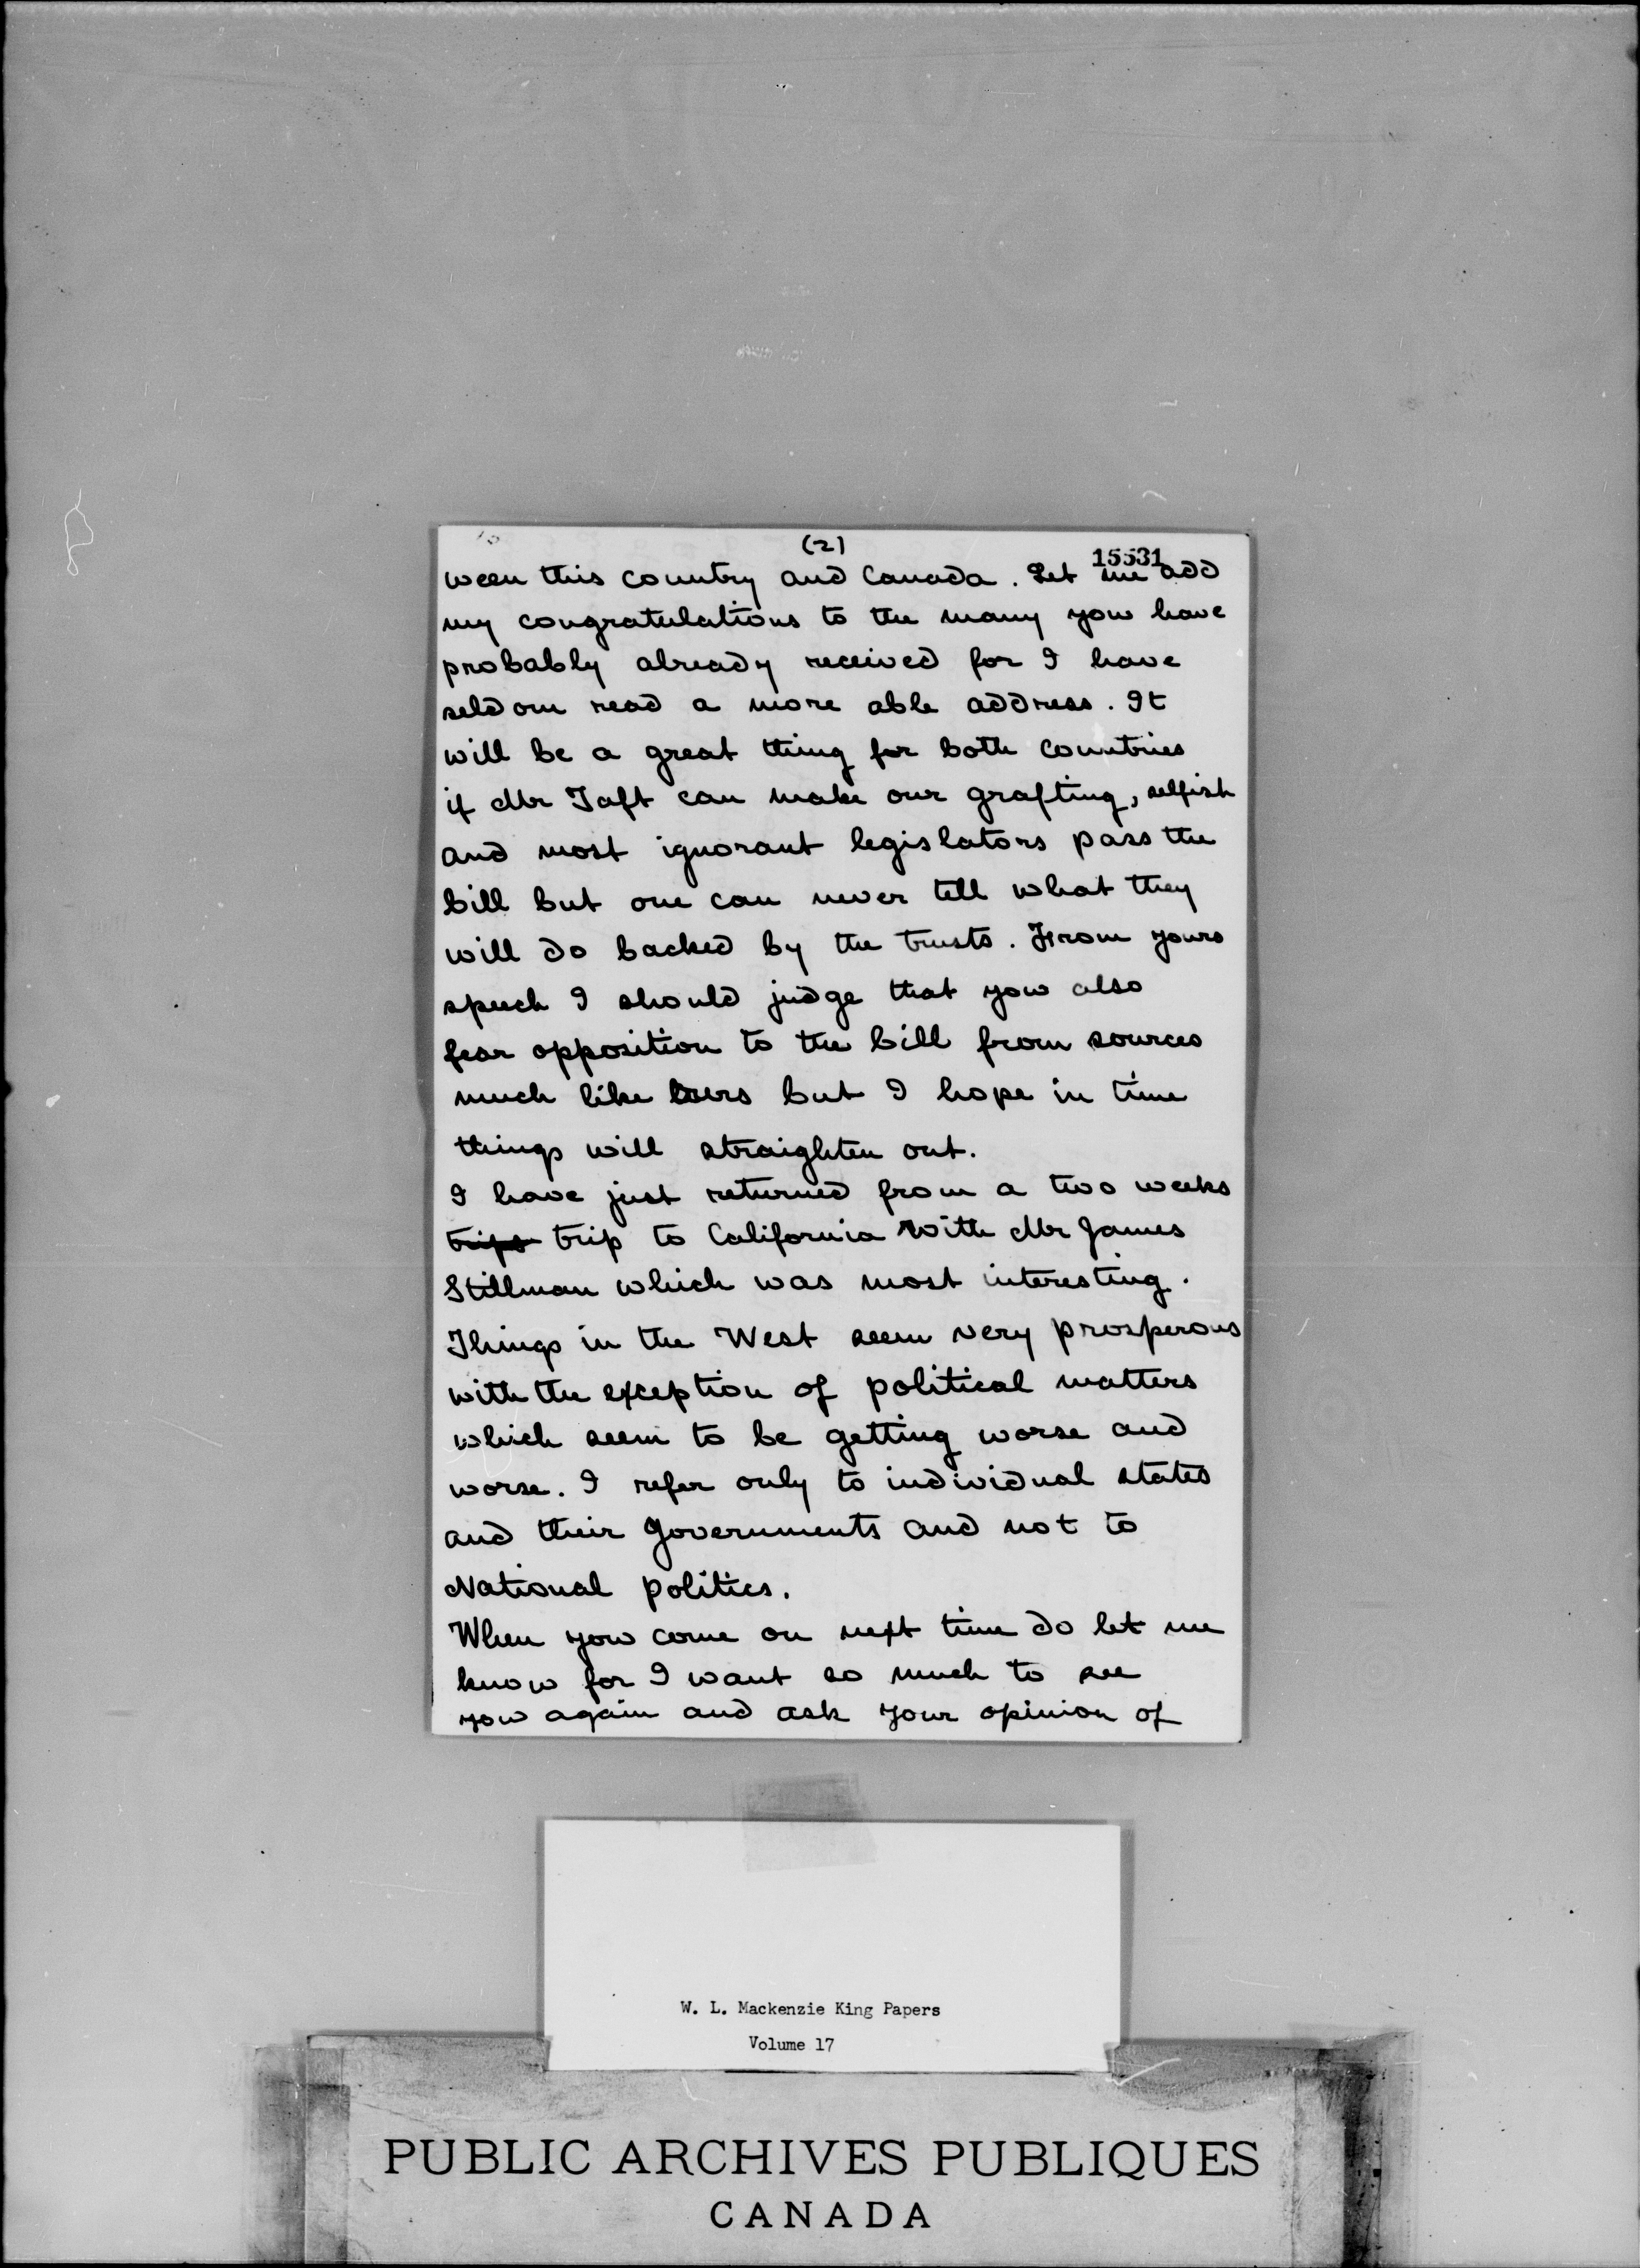 (2)
15531
ween this country and Canada. Let me add
my congratulations to the many you have
probably already received for I have
seldom read a more able address. It
will be a great thing for both countries
if Mr Taft can make our grafting, selfish
and most ignorant legislators pass the
bill but one can never tell what they
will do backed by the trusts. From yours
speech I should judge that you also
fear opposition to the bill from sources
much like ours but I hope in time
things will straighten out.
I have just returned from a two weeks
trips trip to California with Mr James
Stillman which was most interesting.
Things in the West seem very prosperous
with the exception of political matters
which seem to be getting worse and
worse. I refer only to individual states
and their governments and not to
National politics.
When you come on next time do let me
know for I want so much to see
you again and ask your opinion of
W. L. Mackenzie King Papers
Volume 17
PUBLIC ARCHIVES PUBLIQUES
CANADA